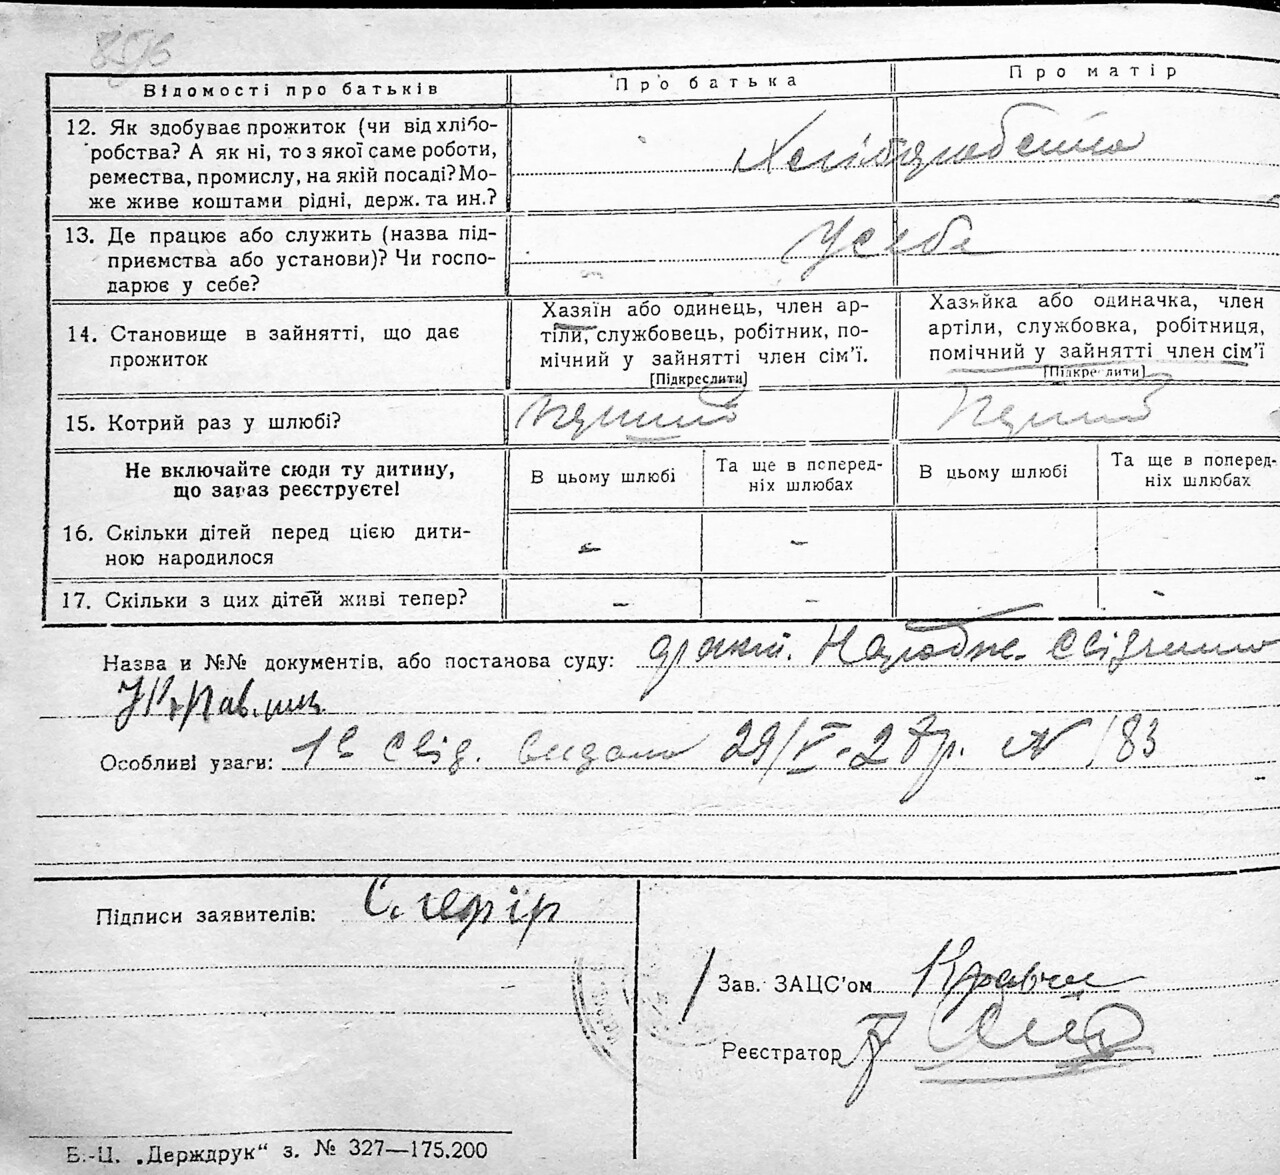 896
Відомості про батьків
Про батька
Про матір
12. Як здобуває прожиток (чи від хлібо-
робства? А як ні, то з якої саме роботи,
ремества, промислу, на якій посаді? Мо-
же живе коштами рідні, держ. та ин.?
Хліборобство
13. Де працює або служить (назва під-
приємства або установи)? Чи госпо-
дарює у себе?
У себе
14. Становище в зайнятті, що дає
прожиток
Хазяїн або одинець, член ар-
тіли, службовець, робітник, по-
мічний у зайнятті член сім'ї.
[Підкреслити]
Хазяйка або одиначка, член
артіли, службовка, робітниця,
помічний у зайнятті член сім'ї
[Підкреслити]
15. Котрий раз у шлюбі?
Перший
Перший
Не включайте сюди ту дитину,
що зараз реєструєте!
В цьому шлюбі
Та ще в поперед-
ніх шлюбах
В цьому шлюбі
Та ще в поперед-
ніх шлюбах
16. Скільки дітей перед цією дити-
ною народилося
-
-
17. Скільки з цих дітей живі тепер?
-
-
-
Назва и №№ документів, або постанова суду: Народже.
Особливі уваги: свід. видано 29/V-27р. N 183
Підписи заявителів:
Зав. ЗАЦС'ом
Реєстратор
Б.-Ц. „Держдрук" з. № 327—175.200